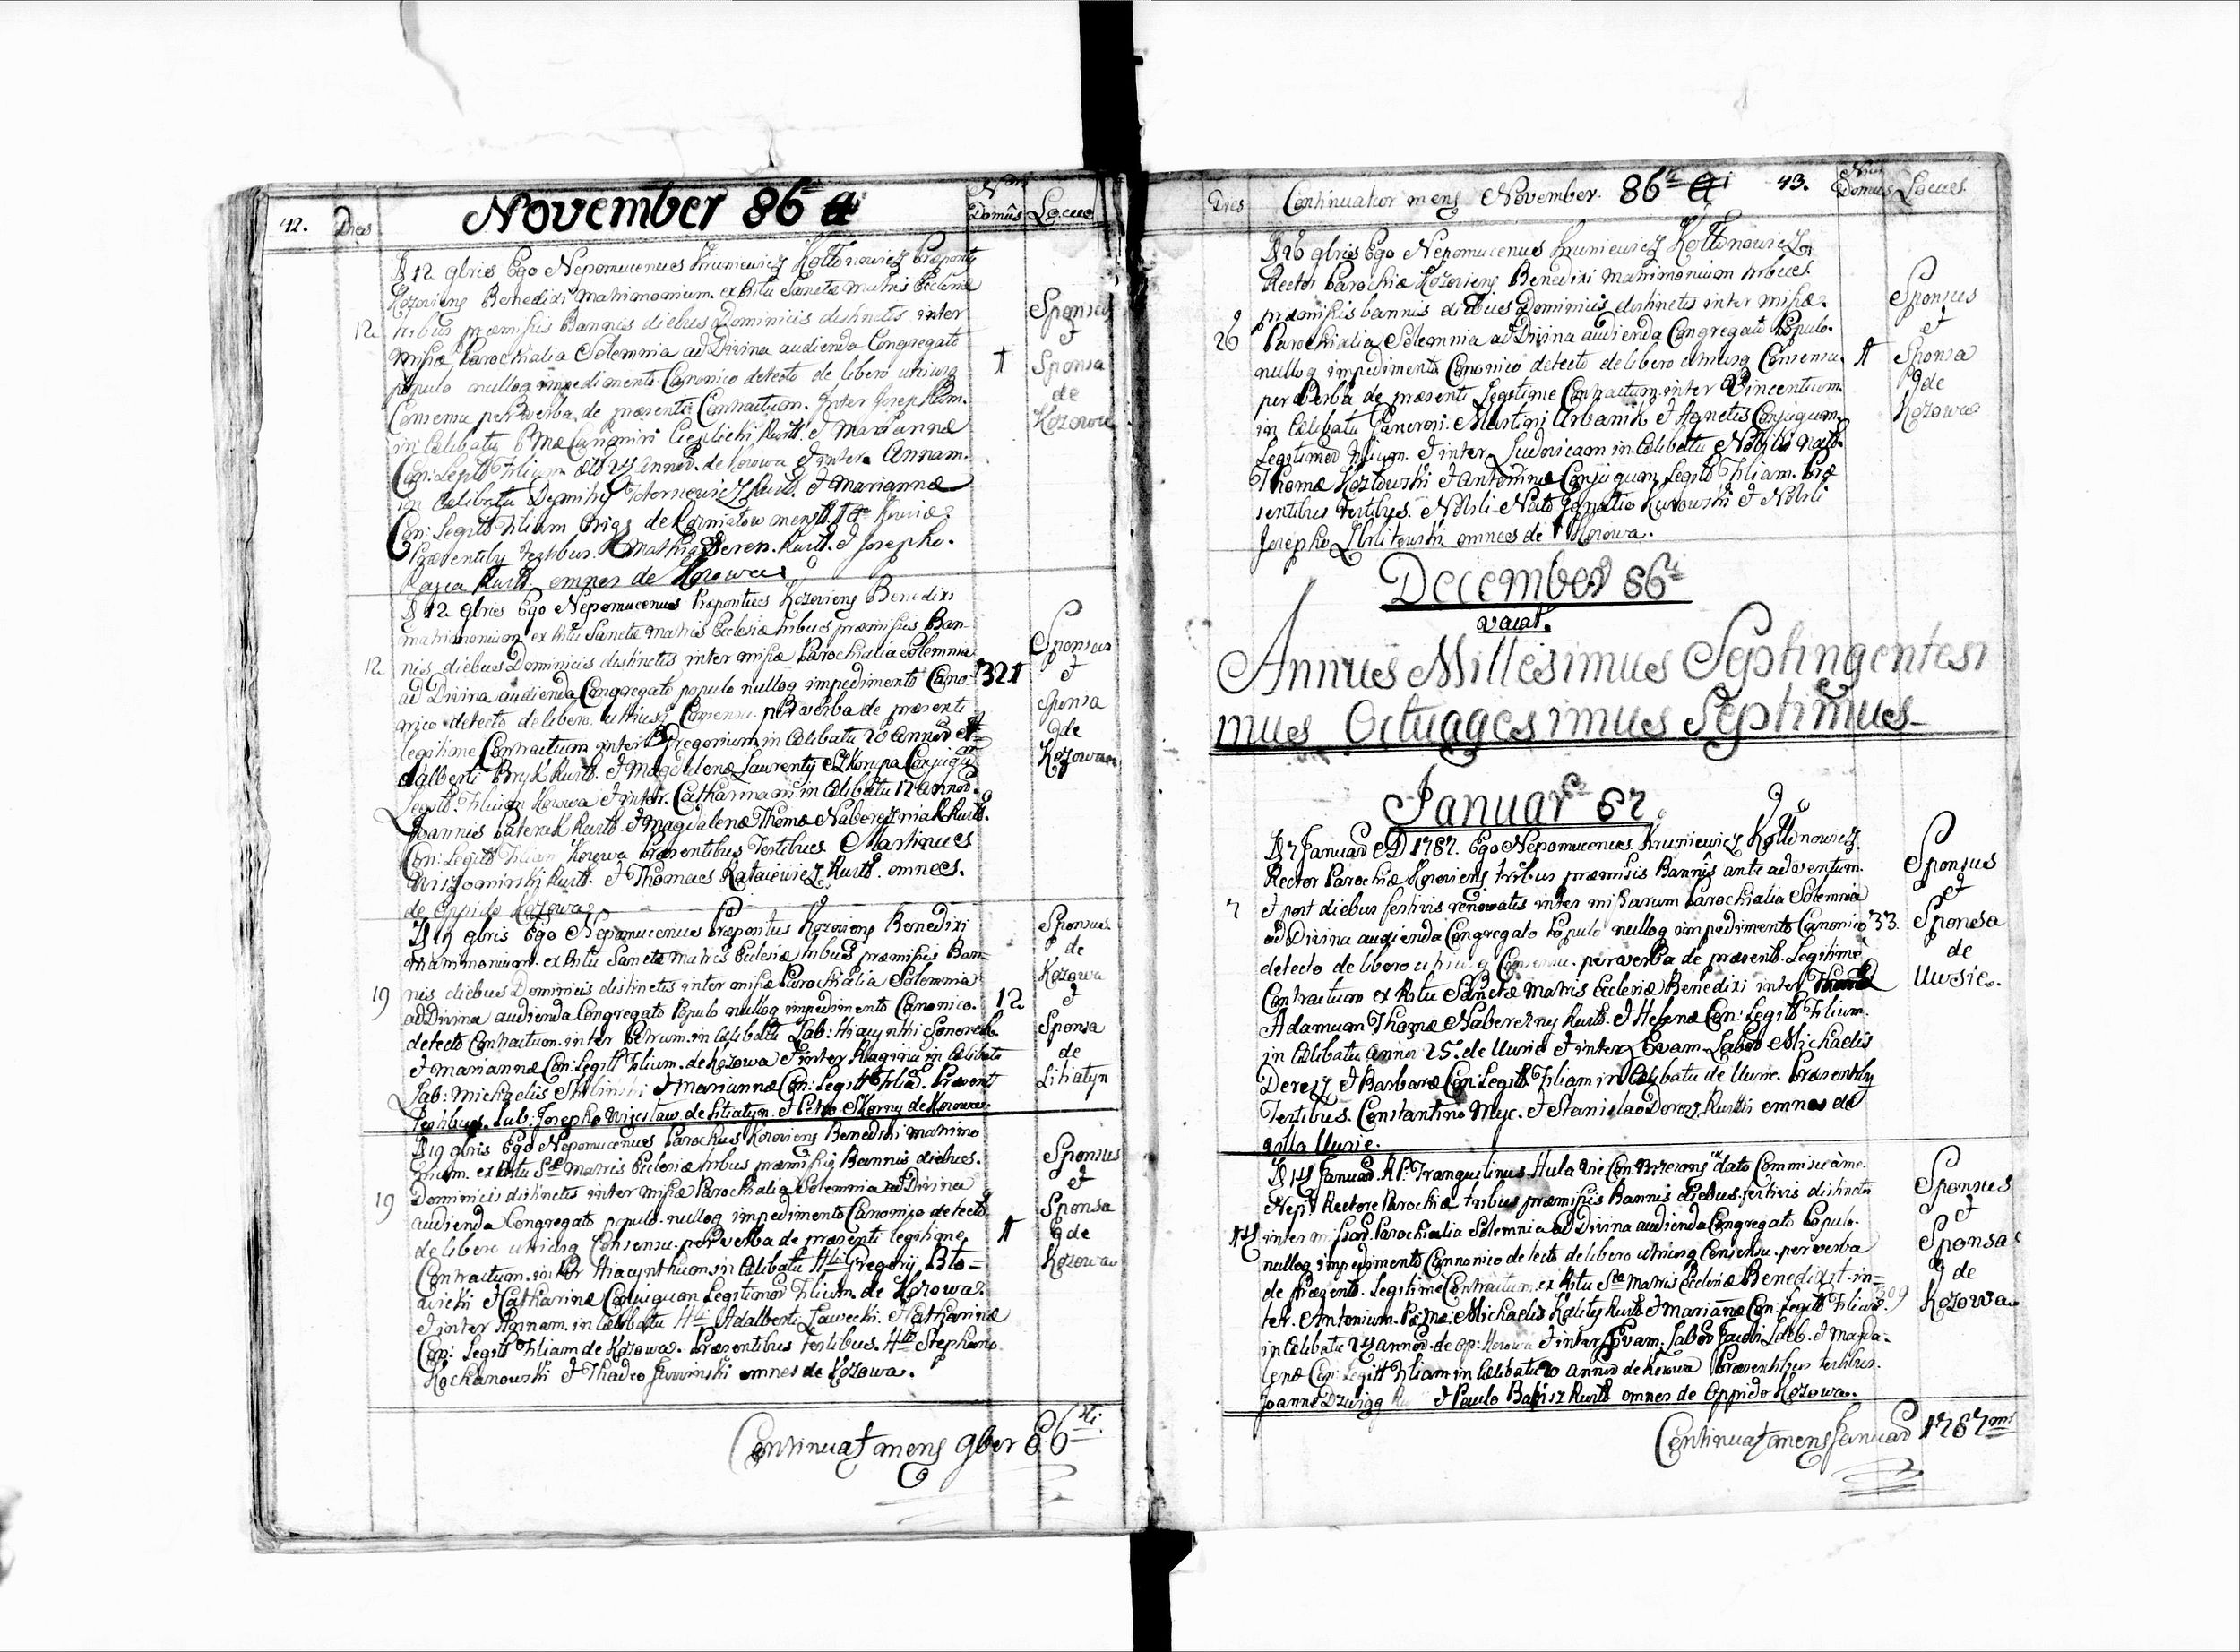 42. Dies November 86 a Nrus Domûs Locus
D 12 9bris Ego Nepomucenus Kruniewicz Kołłonowicz Præpositg
Kozoviens Benedixi Matrimonium ex Ritu Sanctæ Matris Ecclesiæ
12 tribus præmissis Bannis diebus Dominicis distinctis inter
missæ Parochialia Solemnia ad Divina audienda Congregato
populo nulloq impedimento Canonico detecto de libero utriusq
Consensu per Verba de præsenti Contractum. Inter Josephum.
in Cælibatu
Con: Legitt Filium de Kozowa et inter Annam.
in Cælibatu Rustt. et Mariannæ
Con: Legitt Filiam
Præsentibg Testibus. Mathia Deren. Rustt. et Josepho.
Rustt. omnes de Kozowa
1
Sponsus
et
Sponsa
de
Kozowa
D 12 9bris Ego Nepomucenus Præpositus Kozoviens Benedixi
matrimonium ex Ritu Sanctæ Matris Ecclesiæ tribus præmissis Ban-
12 nis diebus Dominicis distinctis inter missæ Parochialia Solemnia
ad Divina audienda Congregato populo nulloq impedimento Cano- 321
nico detecto de libero utriusq Consensu per verba de præsenti
legitime Contractum inter Gregorium in Cælibatu 20 annor A-
dalberti Bryk Rustt. et Magdalenæ Laurenty Skorupa Conjugu
Legitt. Filium Kozowa et inter. Catharinam in Cælibatu 17 annor.
Joannis Paterak Rustt. et Magdalenæ Thomæ Nabereżniak Rustt.
Con: Legitt Filiam Kozowa Præsentibus Testibus. Martinus
Wiszominski Rustt. et Thomas Rataiewicz Rustt. omnes.
de Oppido Kozowa
Sponsus
et
Sponsa
de
Kozowa
D 19 9bris Ego Nepomucenus Præpositus Kozoviens Benedixi
Matrimonium. ex Ritu Sanctæ Matris Ecclesiæ tribus præmissis Ban-
19 nis diebus Dominicis distinctis inter missæ Parochialia Solemnia
ad Divina audienda Congregato Populo nulloq impedimento Canonico. 12
detecto Contractum. inter Petrum. in Cælibatu Lab: Hiacynthi
et Mariannæ Con: Legitt Filium. de Kozowa et inter in Cælibatu
Lab: Michaelis et Mariannæ Con: Legitt Filia. Præsent
Testibus. Lab: Josepho de Litiatyn. et Petro Skorny de Kozowa.
Sponsus
de
Kozowa
et
Sponsa
de
Litiatyn
D 19 9bris Ego Nepomucenus Parochus Kozoviens Benedixi matrimo
nium. ex Ritu Stæ Matris Ecclesiæ tribus præmissis Bannis diebus.
19 Dominicis distinctis inter missæ Parochialia Solemnia ad Divina
audienda Congregato populo. nulloq impedimento Canonico detecto
de libero utriusq Consensu. per verba de præsenti legitime 1
Contractum. inter Hiacynthum in Cælibatu Gregorij Bło-
wicki et Catharinæ Conjugum Legitimor Filium. de Kozowa
et inter Annam. in Cælibatu Adalberti Sawecki. et Catharinæ
Con: Legitt Filiam de Kozowa. Præsentibus Testibus. Stephano
Kochanowski et Thadeo omnes de Kozowa.
Sponsus
et
Sponsa
de
Kozowa
Continuat mens 9ber 86
Dies Continuatur mens November. 86 a 43. Nrus Domus Locus
D 26 9bris Ego Nepomucenus Kruniewicz Kołłonowicz
Rector Parochiæ Kozoviens Benedixi Matrimonium tribus
præmissis bannis diebus Dominicis distinctis inter missæ.
26 Parochialia Solemnia ad Divina audienda Congregato Populo.
nulloq impedimento Canonico detecto de libero utriusq Consensu. 1
per Verba de præsenti Legitime Contractum inter Vincentium.
in Cælibatu Martini Urbanik et Agnetis Conjugum
Legitimor Filium. et inter Ludovicam in Cælibatu Nobilis
Thomæ Kozlowski et Antoninæ Conjugum Legitt Filiam. Præ
sentibus Testibus. Nobili Ignatio Kurowski et Nobili
Josepho omnes de Kozowa.
Sponsus
et
Sponsa
de
Kozowa
December 86
vacat.
Annus Millesimus Septingentesi
mus Octuagesimus Septimus
Januar 87
D 7 Januar A D 1787. Ego Nepomucenus Kruniewicz Kołłonowicz.
Rector Parochiæ Kozoviens tribus præmissis Bannis ante adventum.
7 et post diebus festivis renovatis inter missarum Parochialia Solemnia
ad Divina audienda Congregato Populo nulloq impedimento Canonico 33.
detecto de libero utriusq Consensu. per verba de præsenti Legitime
Contractum ex Ritu Sanctæ Matris Ecclesiæ Benedixi inter
Adamum Thomæ Nabereżny Rustt. et Helenæ Con: Legitt Filium.
in Cælibatu annor 25. de Uwsie et inter Evam. Labor Michaelis
Deresz et Barbaræ Con: Legitt. Filiam in Cælibatu de Uwsie. Præsentibg
Testibus. Constantino Myc. et Stanislao Dorosz Rusttis omnes de
villa Uwsie.
Sponsus
et
Sponsa
de
Uwsie.
D 14 Januar. R.P. Tranquilinus Hula Vic Con. dato Commissa a me.
Nep. Rectore Parochiæ tribus præmissis Bannis diebus festivis distinctis
14 inter missar. Parochialia Solemnia ad Divina audienda Congregato Populo.
nulloq impedimento Cannonico detecto de libero utriusq Consensu. per verba
de Præsenti. Legitime Contractum. ex Ritu Stæ Matris Ecclesiæ Benedixit in-
ter. Antonium. Michaelis Kality Rustt et Mariannæ Con: Legitt Filium. 309
in Cælibatu 24 annor. de op: Kozowa et inter Evam. Labor Jacobi et Magda-
lenæ Con: Legitt Filiam in Cælibatu 20 annor de Kozowa Præsentibus testibus.
Joanne Dzwigg et Paulo Babisz Rustt omnes de Oppido Kozowa.
Sponsus
et
Sponsa
de
Kozowa
Continuat mens Januar 1787